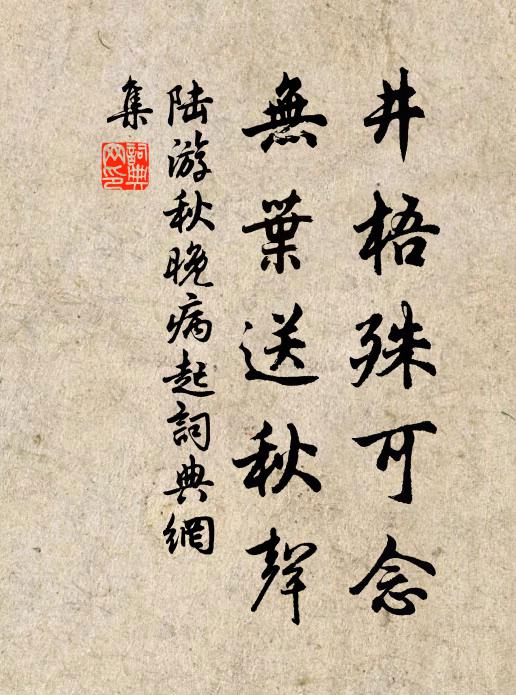 井梧殊可念
無葉送秋聲
陸游秋晚病起詞典網
集
詞典
网印